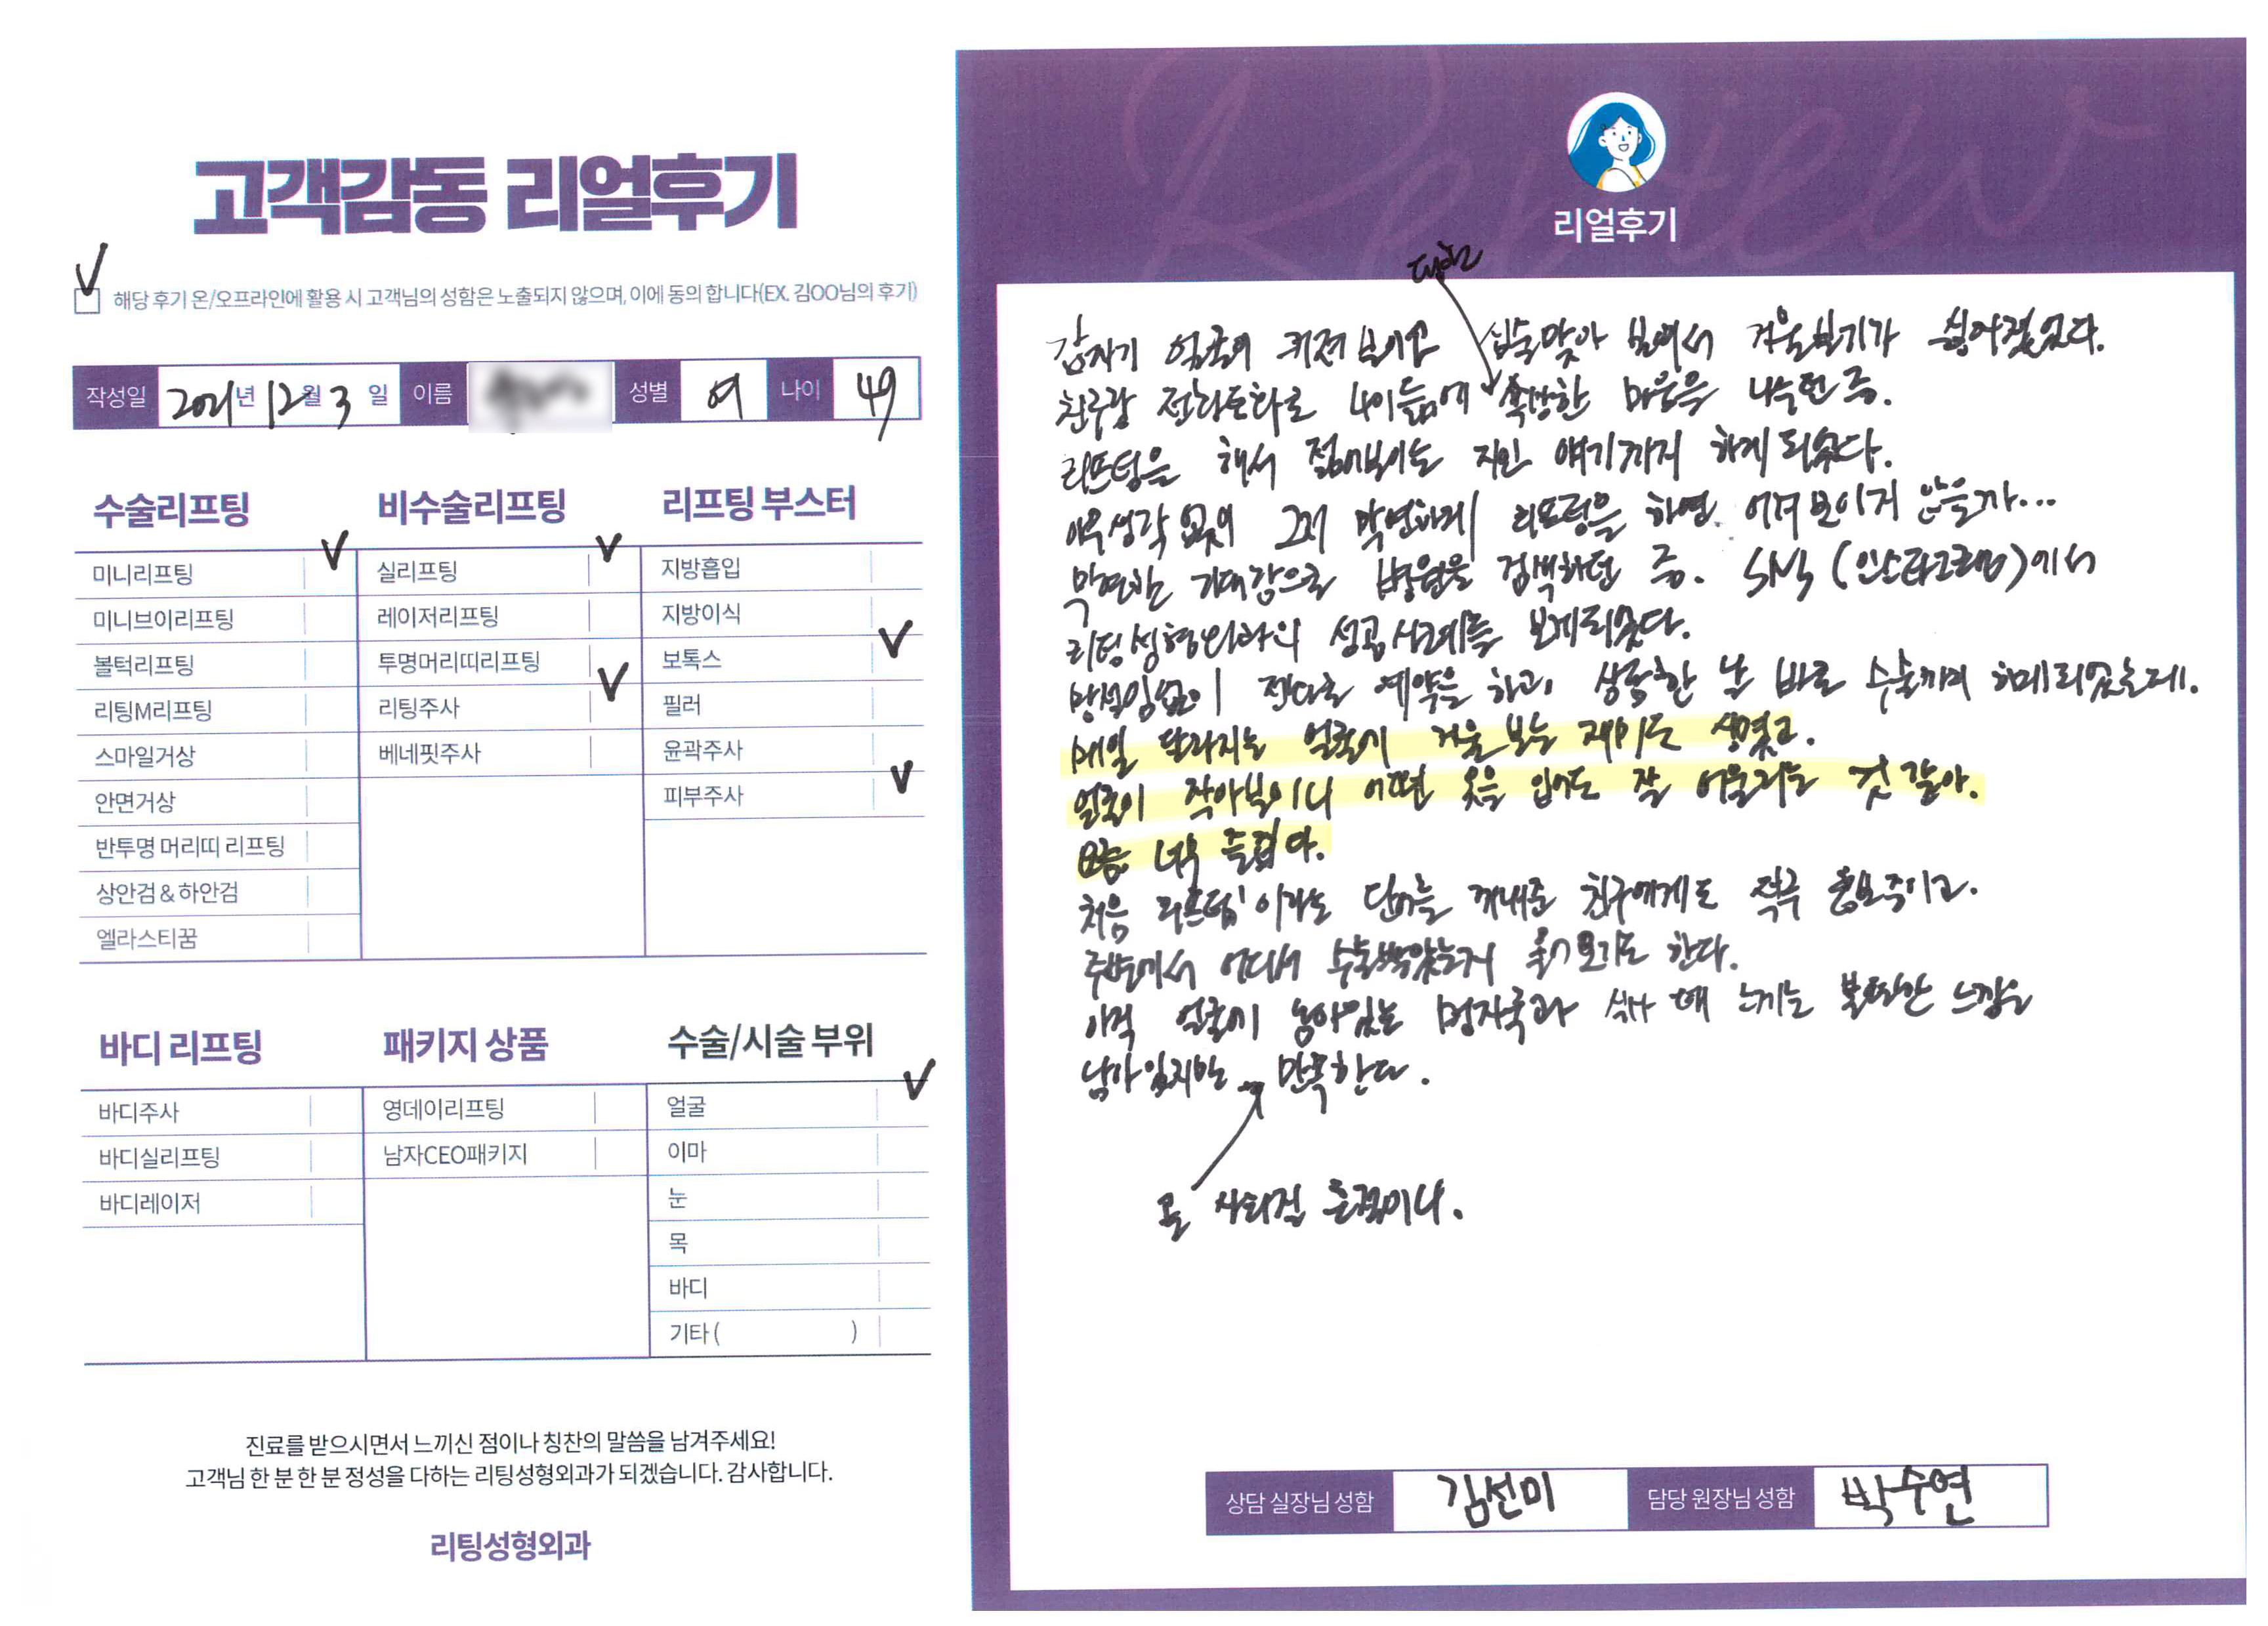 고객감동 리얼후기
해당 후기 온/오프라인에 활용 시 고객님의 성함은 노출되지 않으며, 이에 동의 합니다(EX. 김OO님의 후기)
작성일 2021년 12월 3일 이름 성별 여 나이 49
수술리프팅
미니리프팅
미니브이리프팅
볼턱리프팅
리팅M리프팅
스마일거상
안면거상
반투명 머리띠 리프팅
상안검&하안검
엘라스티꿈
비수술리프팅
실리프팅
레이저리프팅
투명머리띠리프팅
리팅주사
베네핏주사
리프팅 부스터
지방흡입
지방이식
보톡스
필러
윤곽주사
피부주사
바디 리프팅
바디주사
바디실리프팅
바디레이저
패키지 상품
영데이리프팅
남자CEO패키지
수술/시술 부위
얼굴
이마
눈
목
바디
기타 ( )
진료를 받으시면서 느끼신 점이나 칭찬의 말씀을 남겨주세요!
고객님 한 분 한 분 정성을 다하는 리팅성형외과가 되겠습니다. 감사합니다.
리팅성형외과
Review
리얼후기
갑자기 얼굴이 커져보이고 심술맞아 보여서 거울보기가 싫어졌었다.
친구랑 전화통화로 나이듦에 속상한 마음을 나누던 중.
리프팅을 해서 젊어보이는 지인 얘기까지 하게 되었다.
아무생각 없이 그저 막연하게 리프팅을 하면 어려보이지 않을까...
막연한 기대감으로 병원을 검색하던 중. SNS (인스타그램)에서
리팅성형외과의 성공사례를 보게되었다.
망설임없이 전화로 예약을 하고, 상담한 날 바로 수술까지 하게되었는데.
매일 달라지는 얼굴에 거울 보는 재미도 생겼고.
얼굴이 작아보이니 어떤 옷을 입어도 잘 어울리는 것 같아.
요즘 너무 즐겁다.
처음 '리프팅'이라는 단어를 꺼내준 친구에게도 적극 홍보중이고.
주변에서 어디서 수술받았는지 물어보기도 한다.
아직 얼굴에 남아있는 멍자국과 때 느끼는 불편한 느낌은
남아있지만 만족한다.
곧 사라질 흔적이니.
상담 실장님 성함 김선미 담당 원장님 성함 박수연